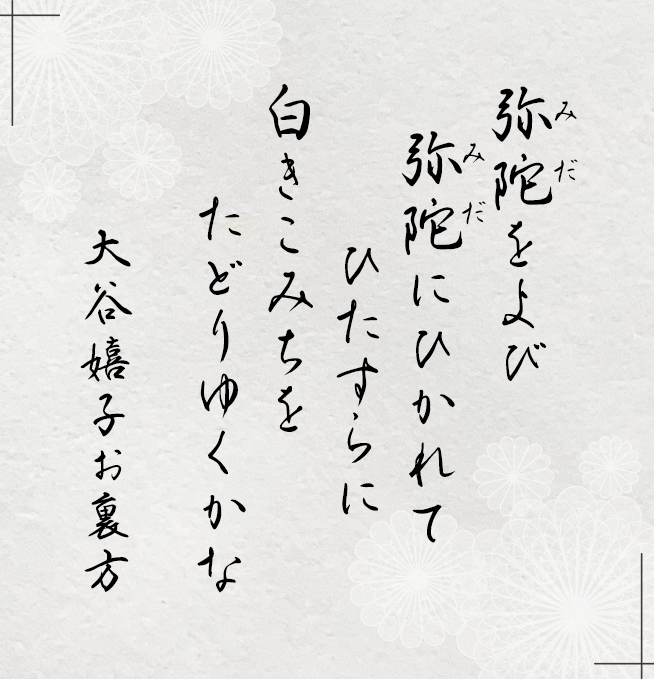 弥陀をよび
弥陀にひかれて
ひたすらに
白きこみちを
たどりゆくかな
大谷嬉子お裏方